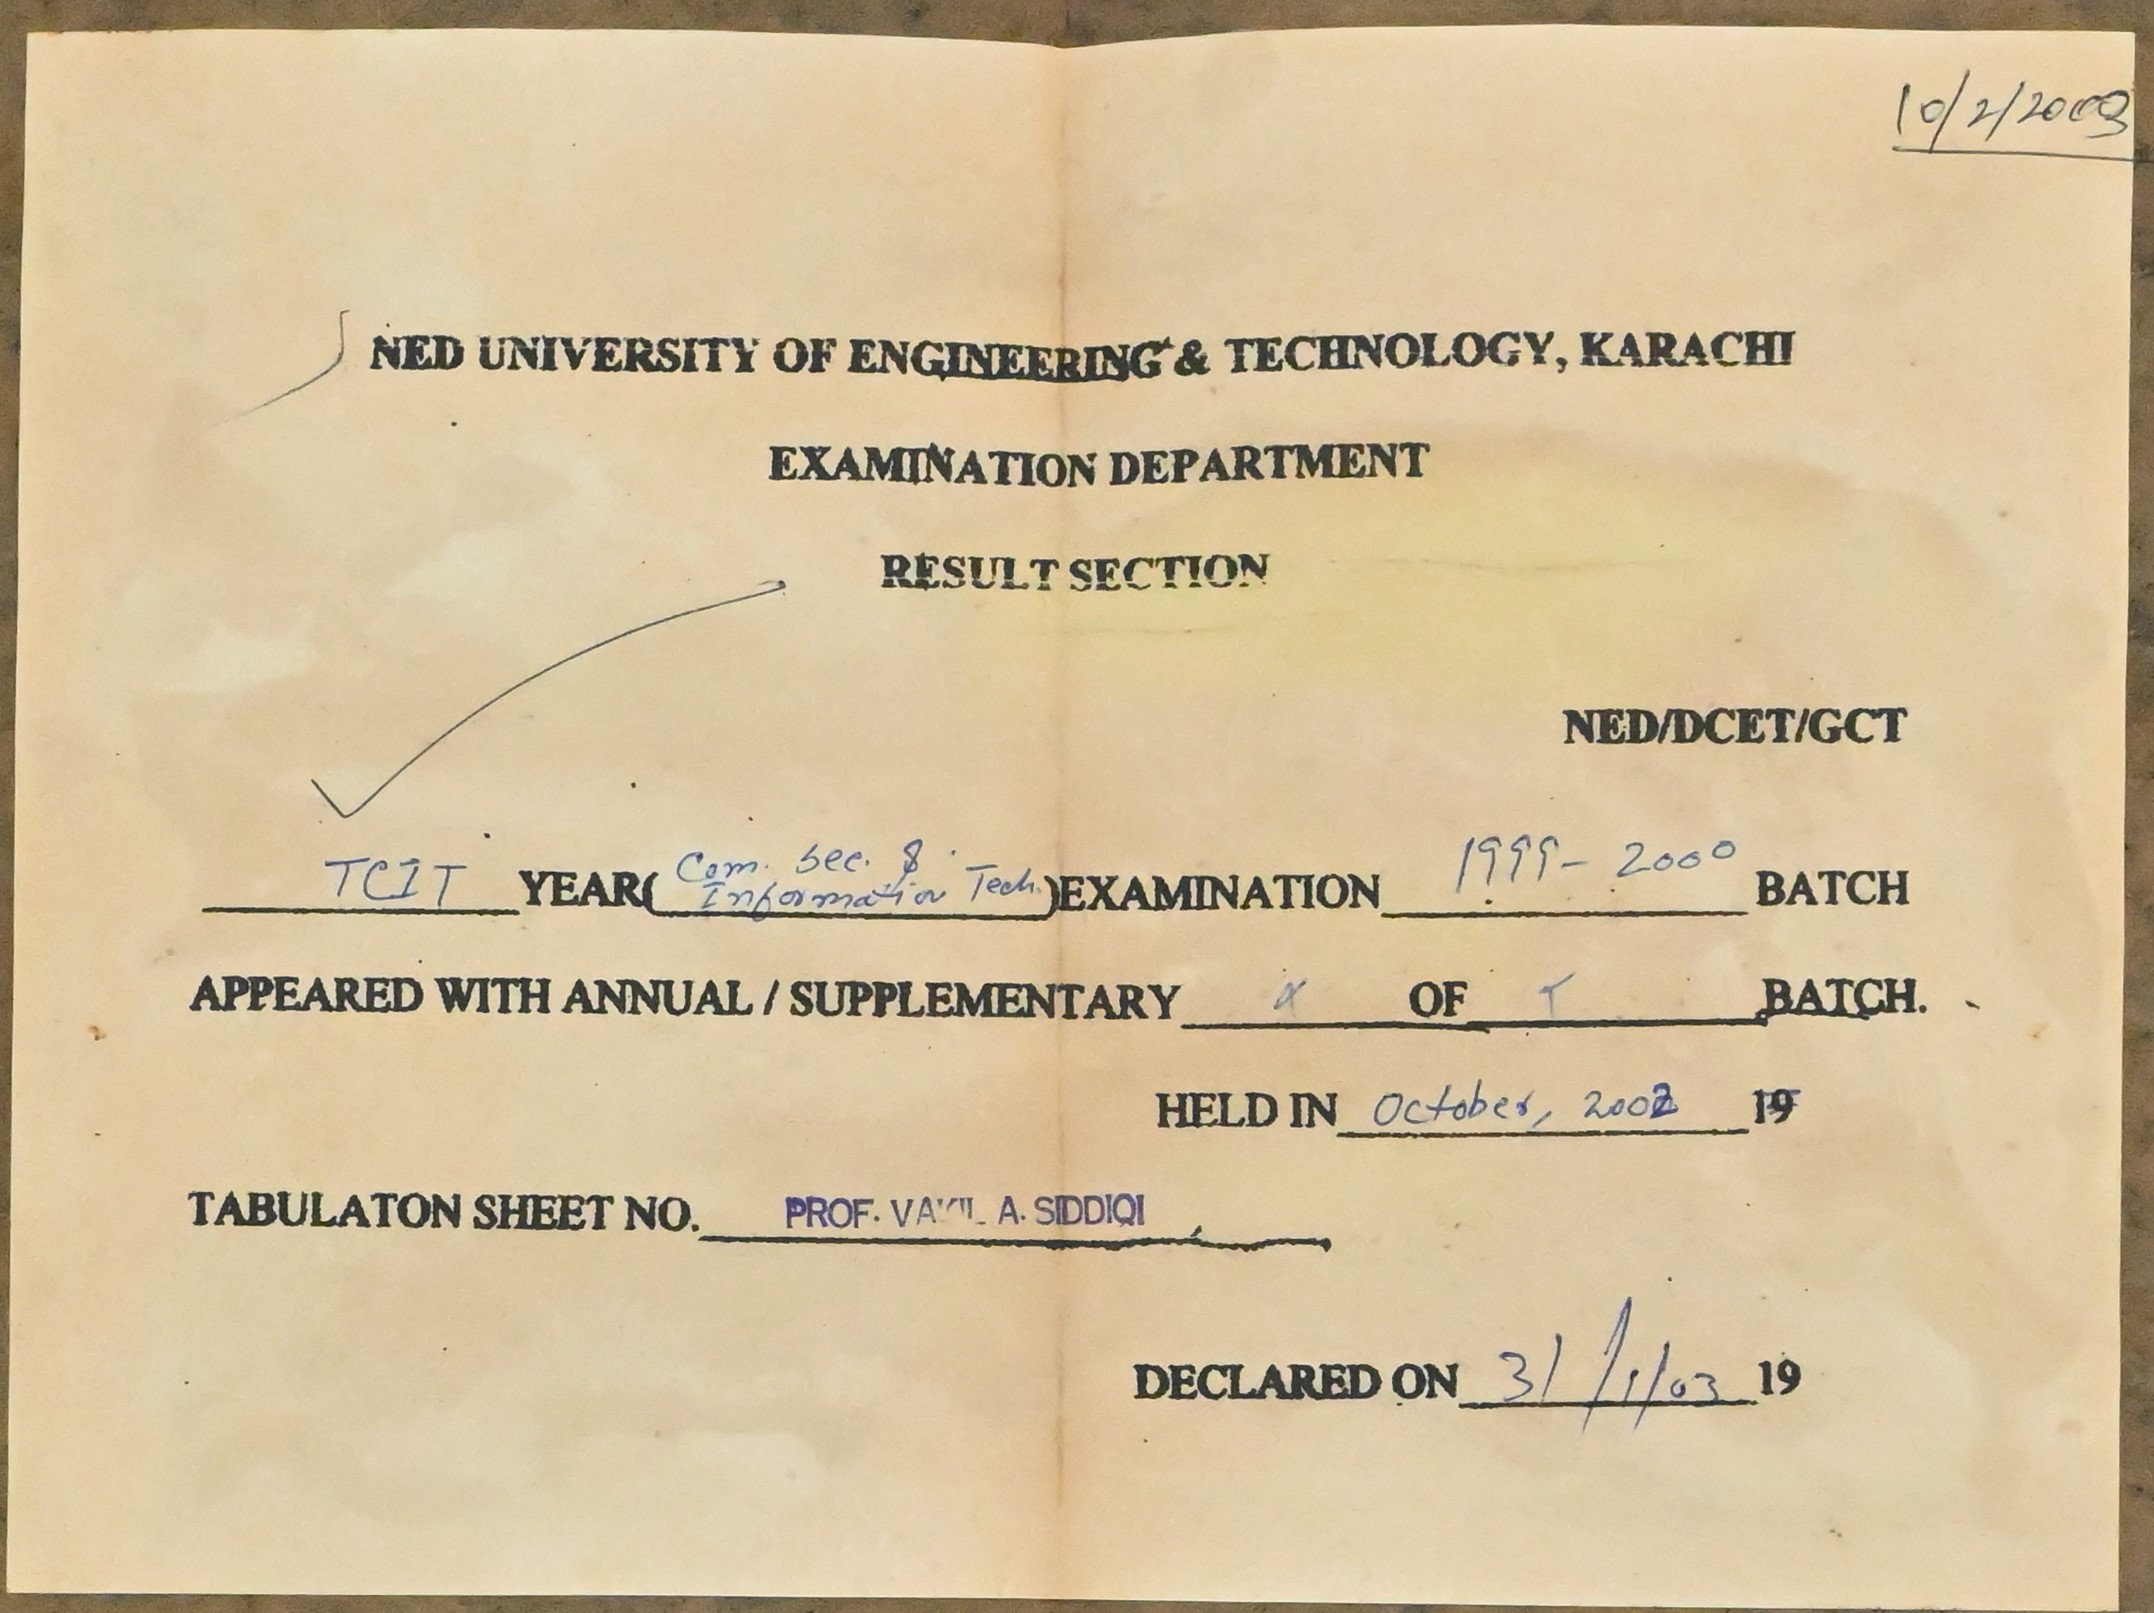 10/2/2003
NED UNIVERSITY OF ENGINEERING & TECHNOLOGY, KARACHI
EXAMINATION DEPARTMENT
RESULT SECTION
NED/DCET/GCT
TCIT YEAR( Com. Sec. & Information Tech. )EXAMINATION 1999-2000 BATCH
APPEARED WITH ANNUAL / SUPPLEMENTARY x OF BATCH.
HELD IN October, 2002 19
TABULATON SHEET NO. PROF. A. SIDDIQI
DECLARED ON 31/1/03 19